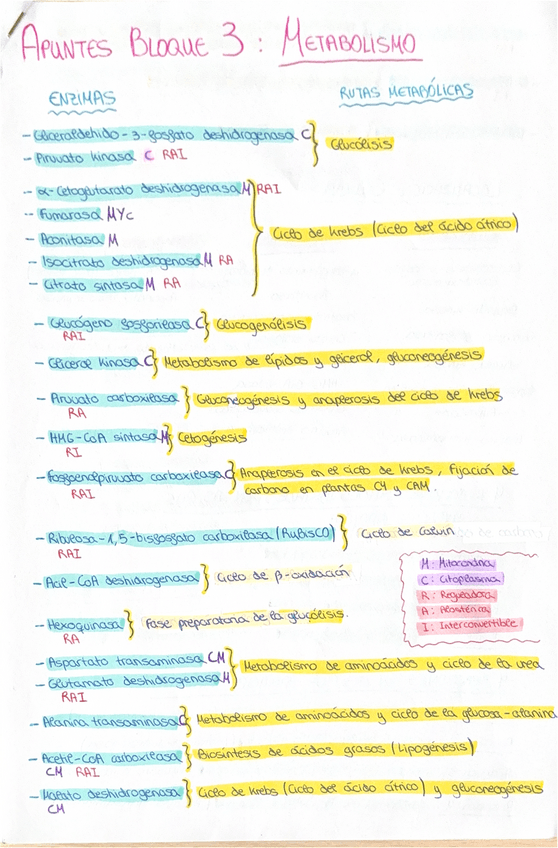 APUNTES BLOQUE 3: METABOLISMO
ENZIMAS
RUTAS METABÓLICAS
- Gliceraldehido-3-fosfato deshidrogenasa C
- Piruvato kinasa C RAI
Glucólisis
- α-Cetoglutarato deshidrogenasa M RAI
- Fumarasa M Y C
- Aconitasa M
- Isocitrato deshidrogenasa M RA
- Citrato sintasa M RA
Ciclo de Krebs (Ciclo del ácido cítrico)
- Glucógeno fosforilasa C } Glucogenólisis
RAI
- Glicerol kinasa C } Metabolismo de lípidos y glicerol, gluconeogénesis
- Piruvato carboxilasa } Gluconeogénesis y anaplerosis del ciclo de Krebs
RA
- HMG-CoA sintasa M } Cetogénesis
RI
- Fosfoenolpiruvato carboxilasa C } Anaplerosis en el ciclo de Krebs, fijación de
RAI
carbono en plantas C4 y CAM.
- Ribulosa-1,5-bisfosfato carboxilasa (RuBisCO) } Ciclo de Calvin
RAI
- Acil-CoA deshidrogenasa } Ciclo de β-oxidación
M: Mitocondria
C: Citoplasma
R: Reguladora
A: Alostérica
I: Interconvertible
- Hexoquinasa } Fase preparatoria de la glucólisis.
RA
- Aspartato transaminasa CM
- Glutamato deshidrogenasa M
RAI
Metabolismo de aminoácidos y ciclo de la urea
- Alanina transaminasa C } Metabolismo de aminoácidos y ciclo de la glucosa-alanina
- Acetil-CoA carboxilasa } Biosíntesis de ácidos grasos (Lipogénesis)
CM RAI
- Malato deshidrogenasa } Ciclo de Krebs (Ciclo del ácido cítrico) y gluconeogénesis
CM